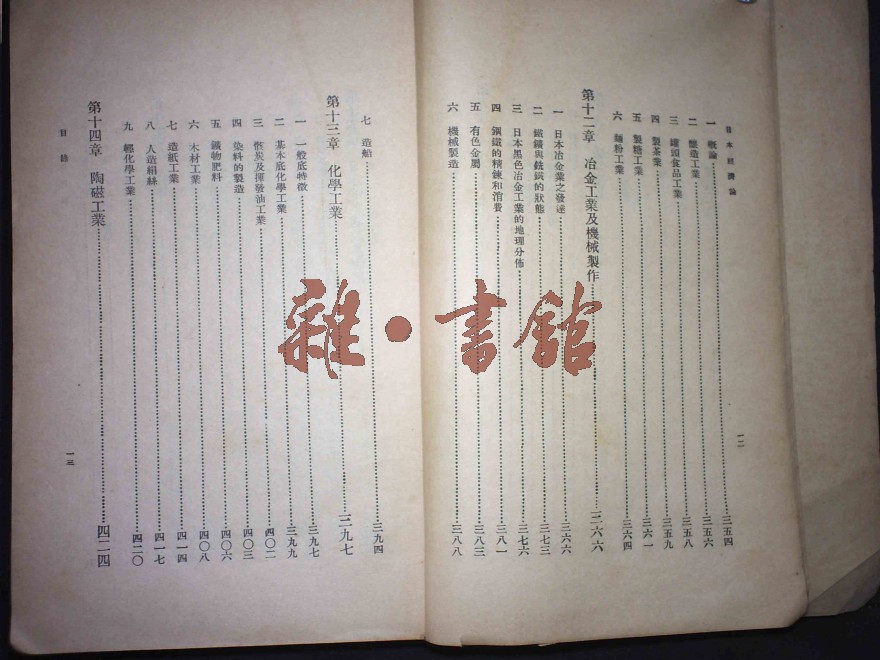 日本經濟論
一二
一 概論 三五四
二 釀造工業 三五六
三 罐頭食品工業 三五八
四 製茶業 三五九
五 製糖工業 三六一
六 麵粉工業 三六四
第十二章 冶金工業及機械製作 三六六
一 日本冶金業之發達 三六六
二 鐵鑛與銑鐵的狀態 三七三
三 日本黑色冶金工業的地理分佈 三七六
四 鋼鐵的精鍊和消費 三八一
五 有色金屬 三八三
六 機械製造 三八八
七 造船 三九四
第十三章 化學工業 三九七
一 一般底特徵 三九七
二 基本底化學工業 三九九
三 骸炭及揮發油工業 四〇二
四 染料的製造 四〇三
五 鑛物肥料 四〇六
六 木材工業 四〇八
七 造紙工業 四一四
八 人造絹絲 四一七
九 輕化學工業 四二〇
第十四章 陶磁工業 四二四
目錄
一三
雜·書館